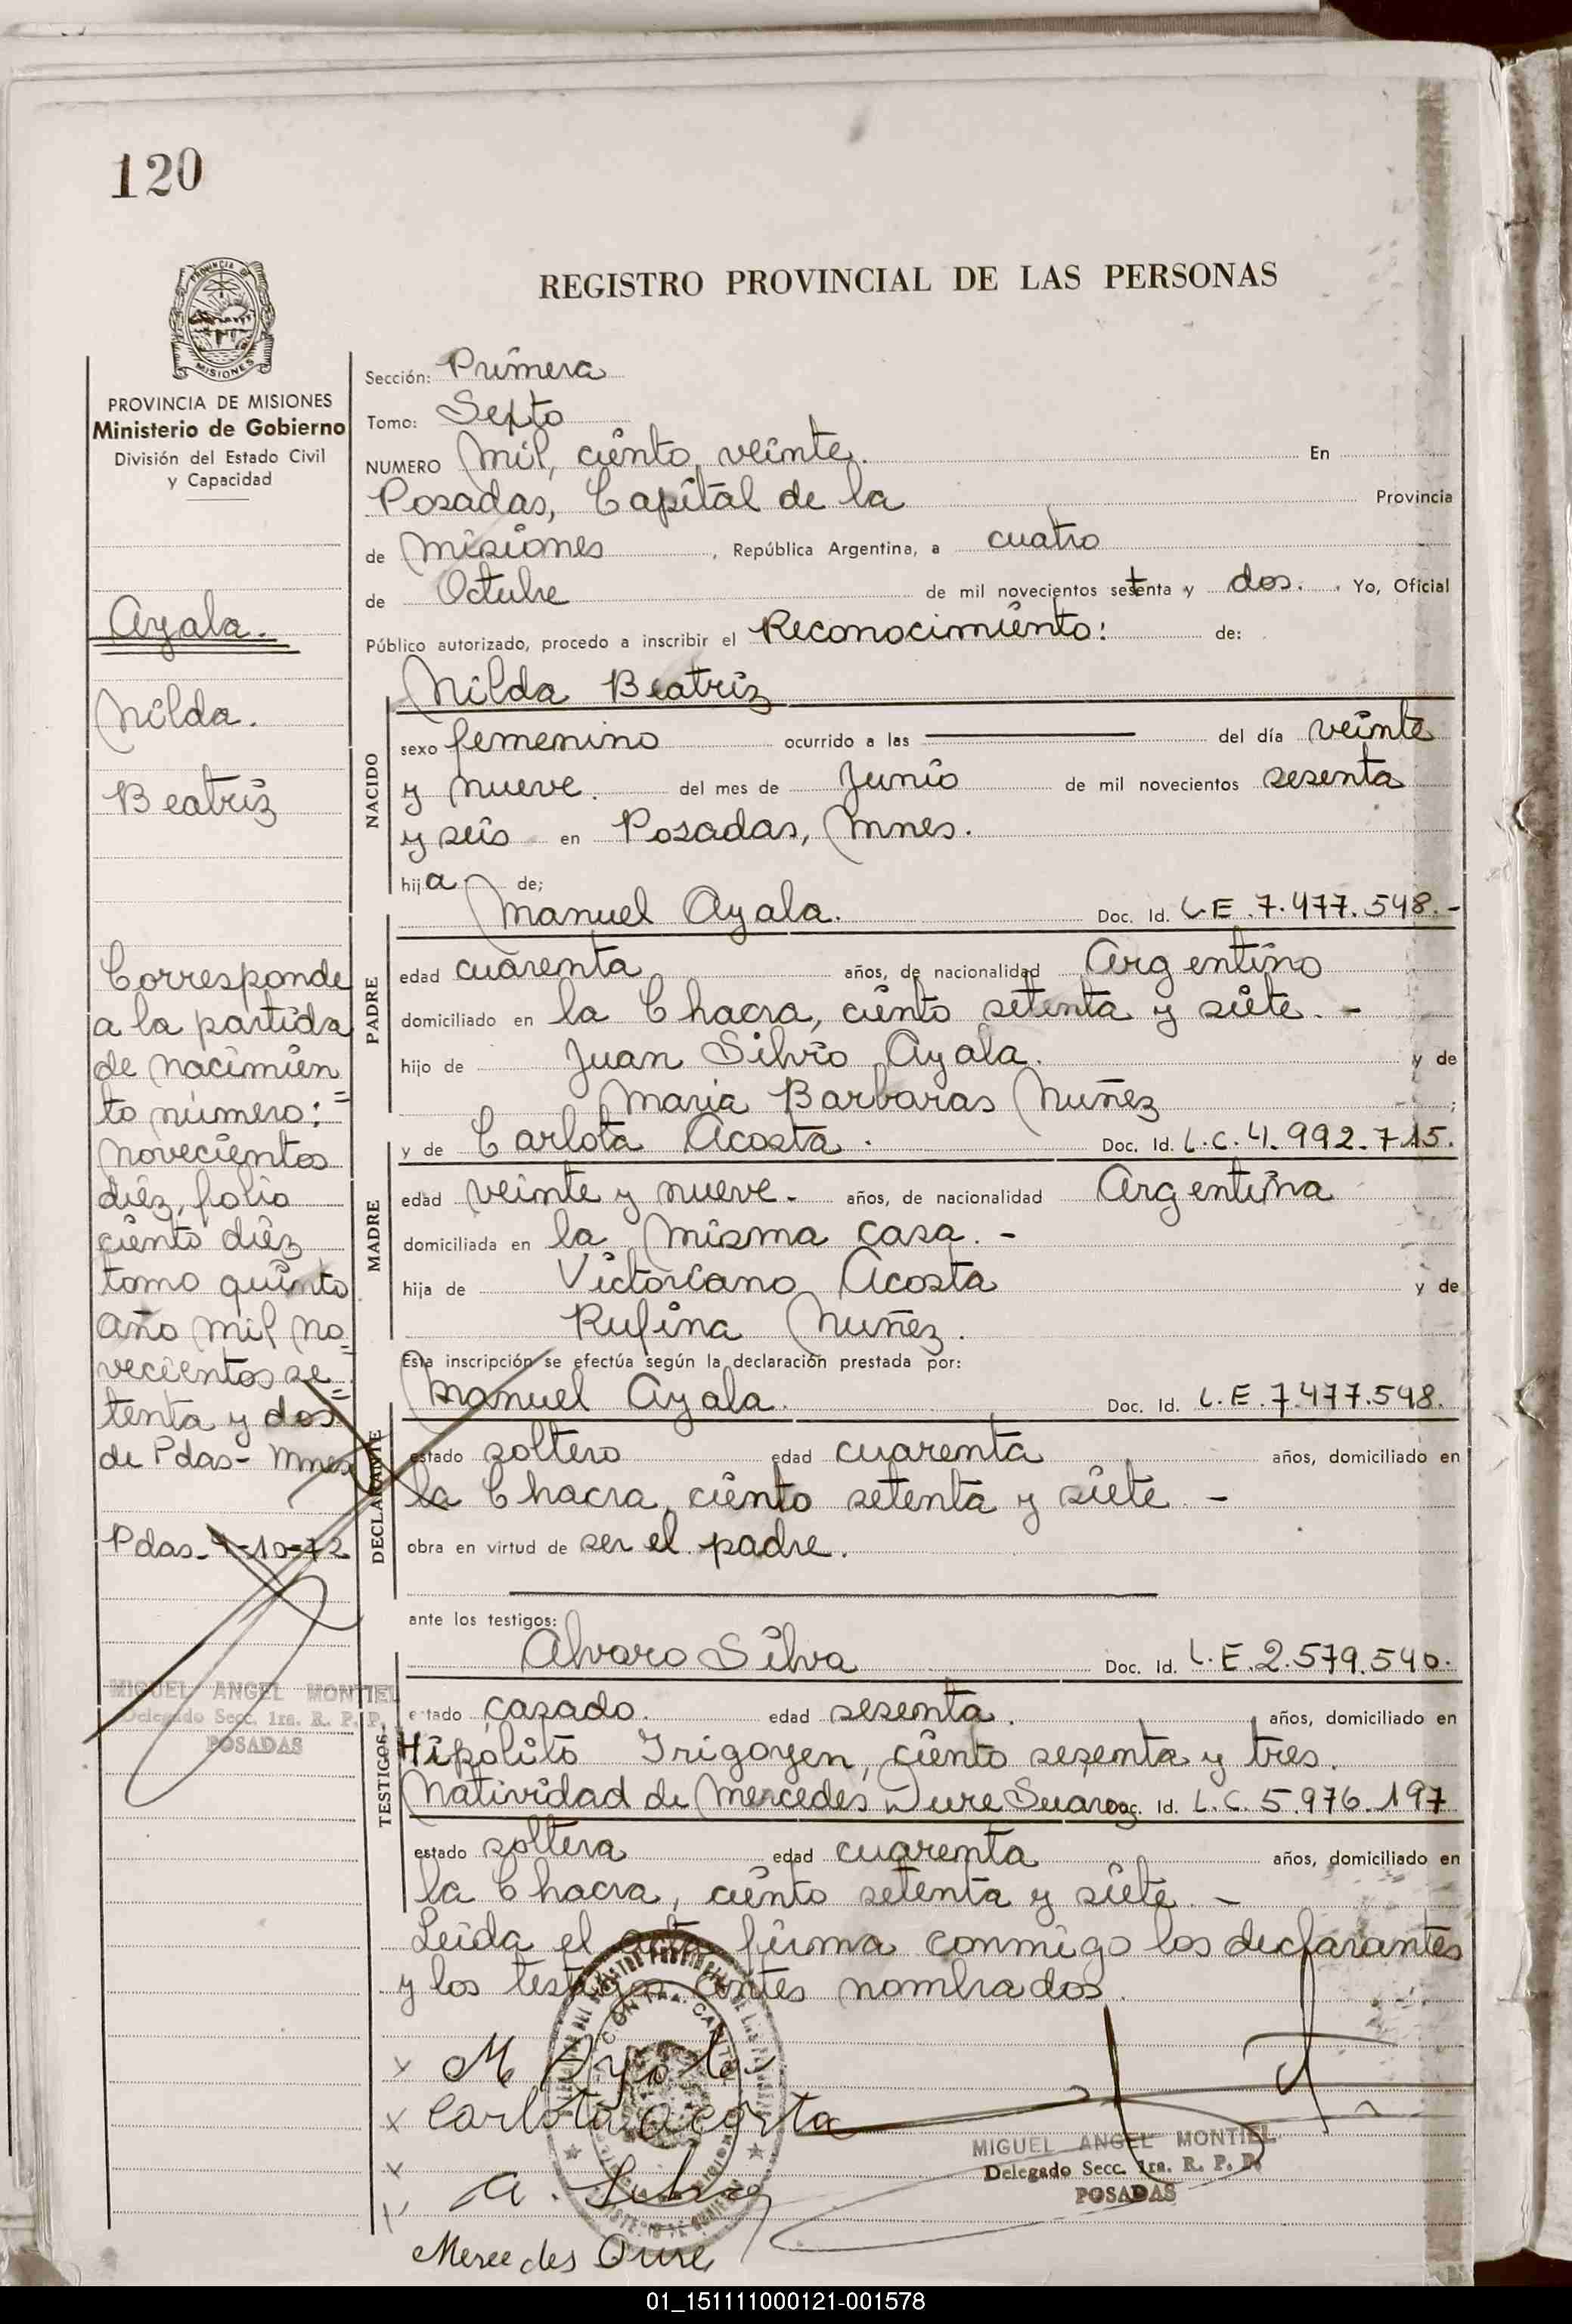 120
REGISTRO PROVINCIAL DE LAS PERSONAS
PROVINCIA DE MISIONES
PROVINCIA DE MISIONES
Ministerio de Gobierno
División del Estado Civil
y Capacidad
Ayala.
Nilda.
Beatriz
Corresponde
a la partida
de nacimien=
to número:
novecientos
diéz, folio
ciento diéz
tomo quinto
año mil no=
vecientos se=
tenta y dos
de Pdas- Mnes
Pdas-4-10-72
MIGUEL ANGEL MONTIEL
Delegado Secc. 1ra. R. P. P.
POSADAS
Sección: Primera
Tomo: Sexto
NUMERO Mil, ciento, veinte. En
Posadas, Capital de la Provincia
de Misiones, República Argentina, a cuatro
de Octubre de mil novecientos setenta y dos. Yo, Oficial
Público autorizado, procedo a inscribir el Reconocimiento: de:
Nilda Beatriz
NACIDO
sexo femenino ocurrido a las del día veinte
y nueve. del mes de Junio de mil novecientos sesenta
y seis en Posadas, Mnes.
hija de;
PADRE
Manuel Ayala. Doc. Id. L.E. 7.477.548.-
edad cuarenta años, de nacionalidad Argentino
domiciliado en la Chacra, ciento setenta y siete.-
hijo de Juan Silvio Ayala. y de
Maria Barbaras Nuñez ;
MADRE
y de Carlota Acosta. Doc. Id. L.C. 4.992.715.
edad veinte y nueve. años, de nacionalidad Argentina
domiciliada en la misma casa.-
hija de Victoriano Acosta y de
Rufina Nuñez.
Esta inscripción se efectúa según la declaración prestada por:
DECLARANTE
Manuel Ayala. Doc. Id. L.E. 7.477.548.
estado soltero edad cuarenta años, domiciliado en
la Chacra, ciento setenta y siete -
obra en virtud de ser el padre.
ante los testigos:
TESTIGOS
Alvaro Silva Doc. Id. L.E. 2.579.540.
estado casado. edad sesenta. años, domiciliado en
Hipólito Irigoyen, ciento sesenta y tres.
Natividad de Mercedes Dure Suarez Doc. Id. L.C. 5.976.197
estado soltera edad cuarenta años, domiciliado en
la Chacra, ciento setenta y siete -
Leida el acta firma conmigo los declarantes
y los testigos antes nombrados.
x M Ayala
x Carlota acosta
x A. Silva
x
Mercedes Dure
MIGUEL ANGEL MONTIEL
Delegado Secc. 1ra. R. P. P.
POSADAS
01_151111000121-001578